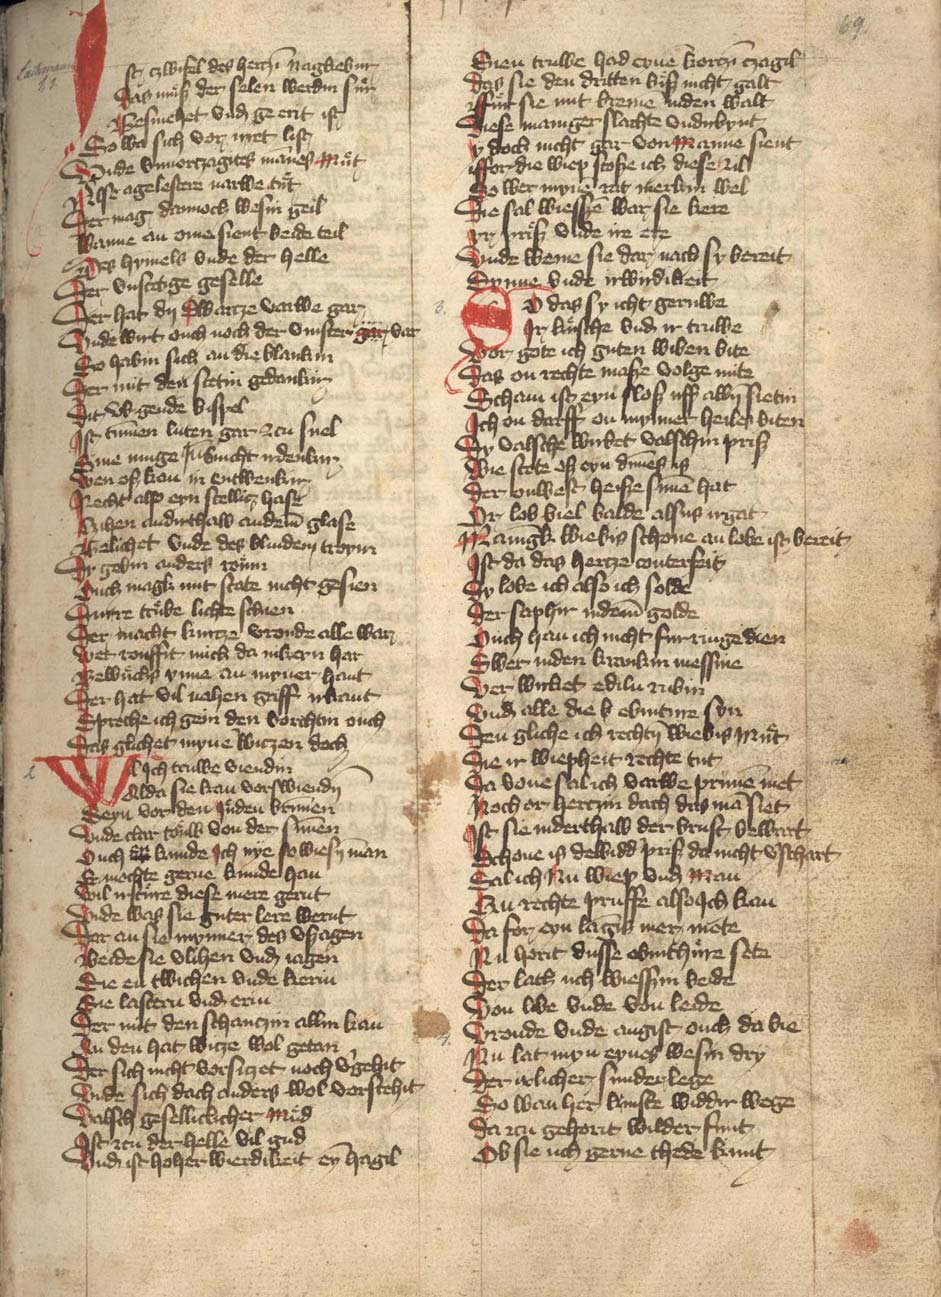 69
Lachmann
1,1
Ist czwifel des herczin nagkebur
Das muß der selen werdin sur
Gesmehet vnd geczirt ist
So wa sich vor irret list
Vnde vnuorczagites mannes Mut
Als agelestere varwe tut
Der mag dannoch wesin geil
Wanne an ome sient beide teil
Des hymels vnde der helle
Der vnstetige geselle
Der hat dy swartze varwe gar
Vnde wirt ouch noch der vinster var
So habin sich an die blankin
Der mit den stetin gedankin
Dit vligende bispel
Ist tummen luten gar zcu snel
Sine muge sin nicht irdenkin
Wen oß kan in entwenkin
Recht alß eyn schellig hase
Czhen andirthalb andem glase
Gelichet vnde des blinden troym
Dy gebin anders roym
Ouch magk mit state nicht gesien
Duirre trube lichte schien
Der macht kurtze vroude alle war
Wer rouffit mich da nikeyn har
Gewuchs ynne an myner hant
Der hat vil nohen griff irkant
Spreche ich gein den vorchtin ouch
Das glichet myne witzen doch
2
Wil ich truwe viendin
Alda sie kan vorswiendin
Seyn vor den Juden brunnen
Vnde clar touw von der sunnen
Ouch kunde Ich nye so wiesin man
Er mochte gerne kunde han
Wil disture diese mere gerut
Vnde was sie guter lere wernt
Der an sie nymmer des vßagen
Beide sie vlihen vnd iagen
Sie entwichen vnde kerin
Sie lastern vnd erin
Der mit den schanczin allin kan
An den hat witze wol getan
Der sich nicht vorsitzet noch vgehit
Vnde sich dach anders wol vorstehit
Valsch gesellicklicher Mud
Ist zcu der helle vil gud
Vnd ist hoher wierdikeit eyn hagil
Sien truwe had eyne kortzin czagil
Das sie den dritten biß nicht galt
Fur sie mit breme inden walt
Diese maniger slachte vndirbynt
y doch nicht gar von Manne sient
ffor die wiep stoße ich diese zil
So wer myne rat merkin wel
Die sal wiessen war sie kere
Ir priß vnde ire ere
Vnde weme sie dar nach sy bereit
Mynne vnde irwirdikeit
3.
So das sy icht geruwe
Ir kusche vnd ir truwe
Vor gote ich guten wiben bite
Das on rechte maße volge mite
Scham ist eyn sloß uff allin sietin
Ich on darff on nymmer heiles biten
Dy valsche wirbet valschin priß
Wie stete eß eyn dunnes is
Der ouwest heiße sunne hat
Ir lob viel balde alsus irgat
Manigk wiebis schone an lobe ist bereit
Ist da das hertze conterfeit
Dy lobe ich also ich solde
Der saphir indem golde
Ouch han ich nicht fur ringe dien
Swer inden krankin messine
Der wirbet edilu rubin
Vnd alle die ebintire syn
Den gliche ich rechtin wiebis Mut
Die ir wiepheit rechte tut
Da vone sal ich varwe prüuen niet
Noch or hertzin dach das man siet
Ist sie inderthalb der brust bewart
Schone is dewidd priß da nicht vschart
Sal ich Nu wiep vnd Man
Zu rechte pruffe also Ich kan
Da for eyn langis mer mete
Nu horit dusse ebinthure sete
Der lath uch wiessin beide
Von libe vnde von leide
Vroude vnde angist ouch da bie
4.
Nu lat myn eynes wesin dry
Der iclicher sunder lege
So wan her kunste widdir wege
Da zcu gehorit wilder funt
Ob sie uch gerne thede kunt